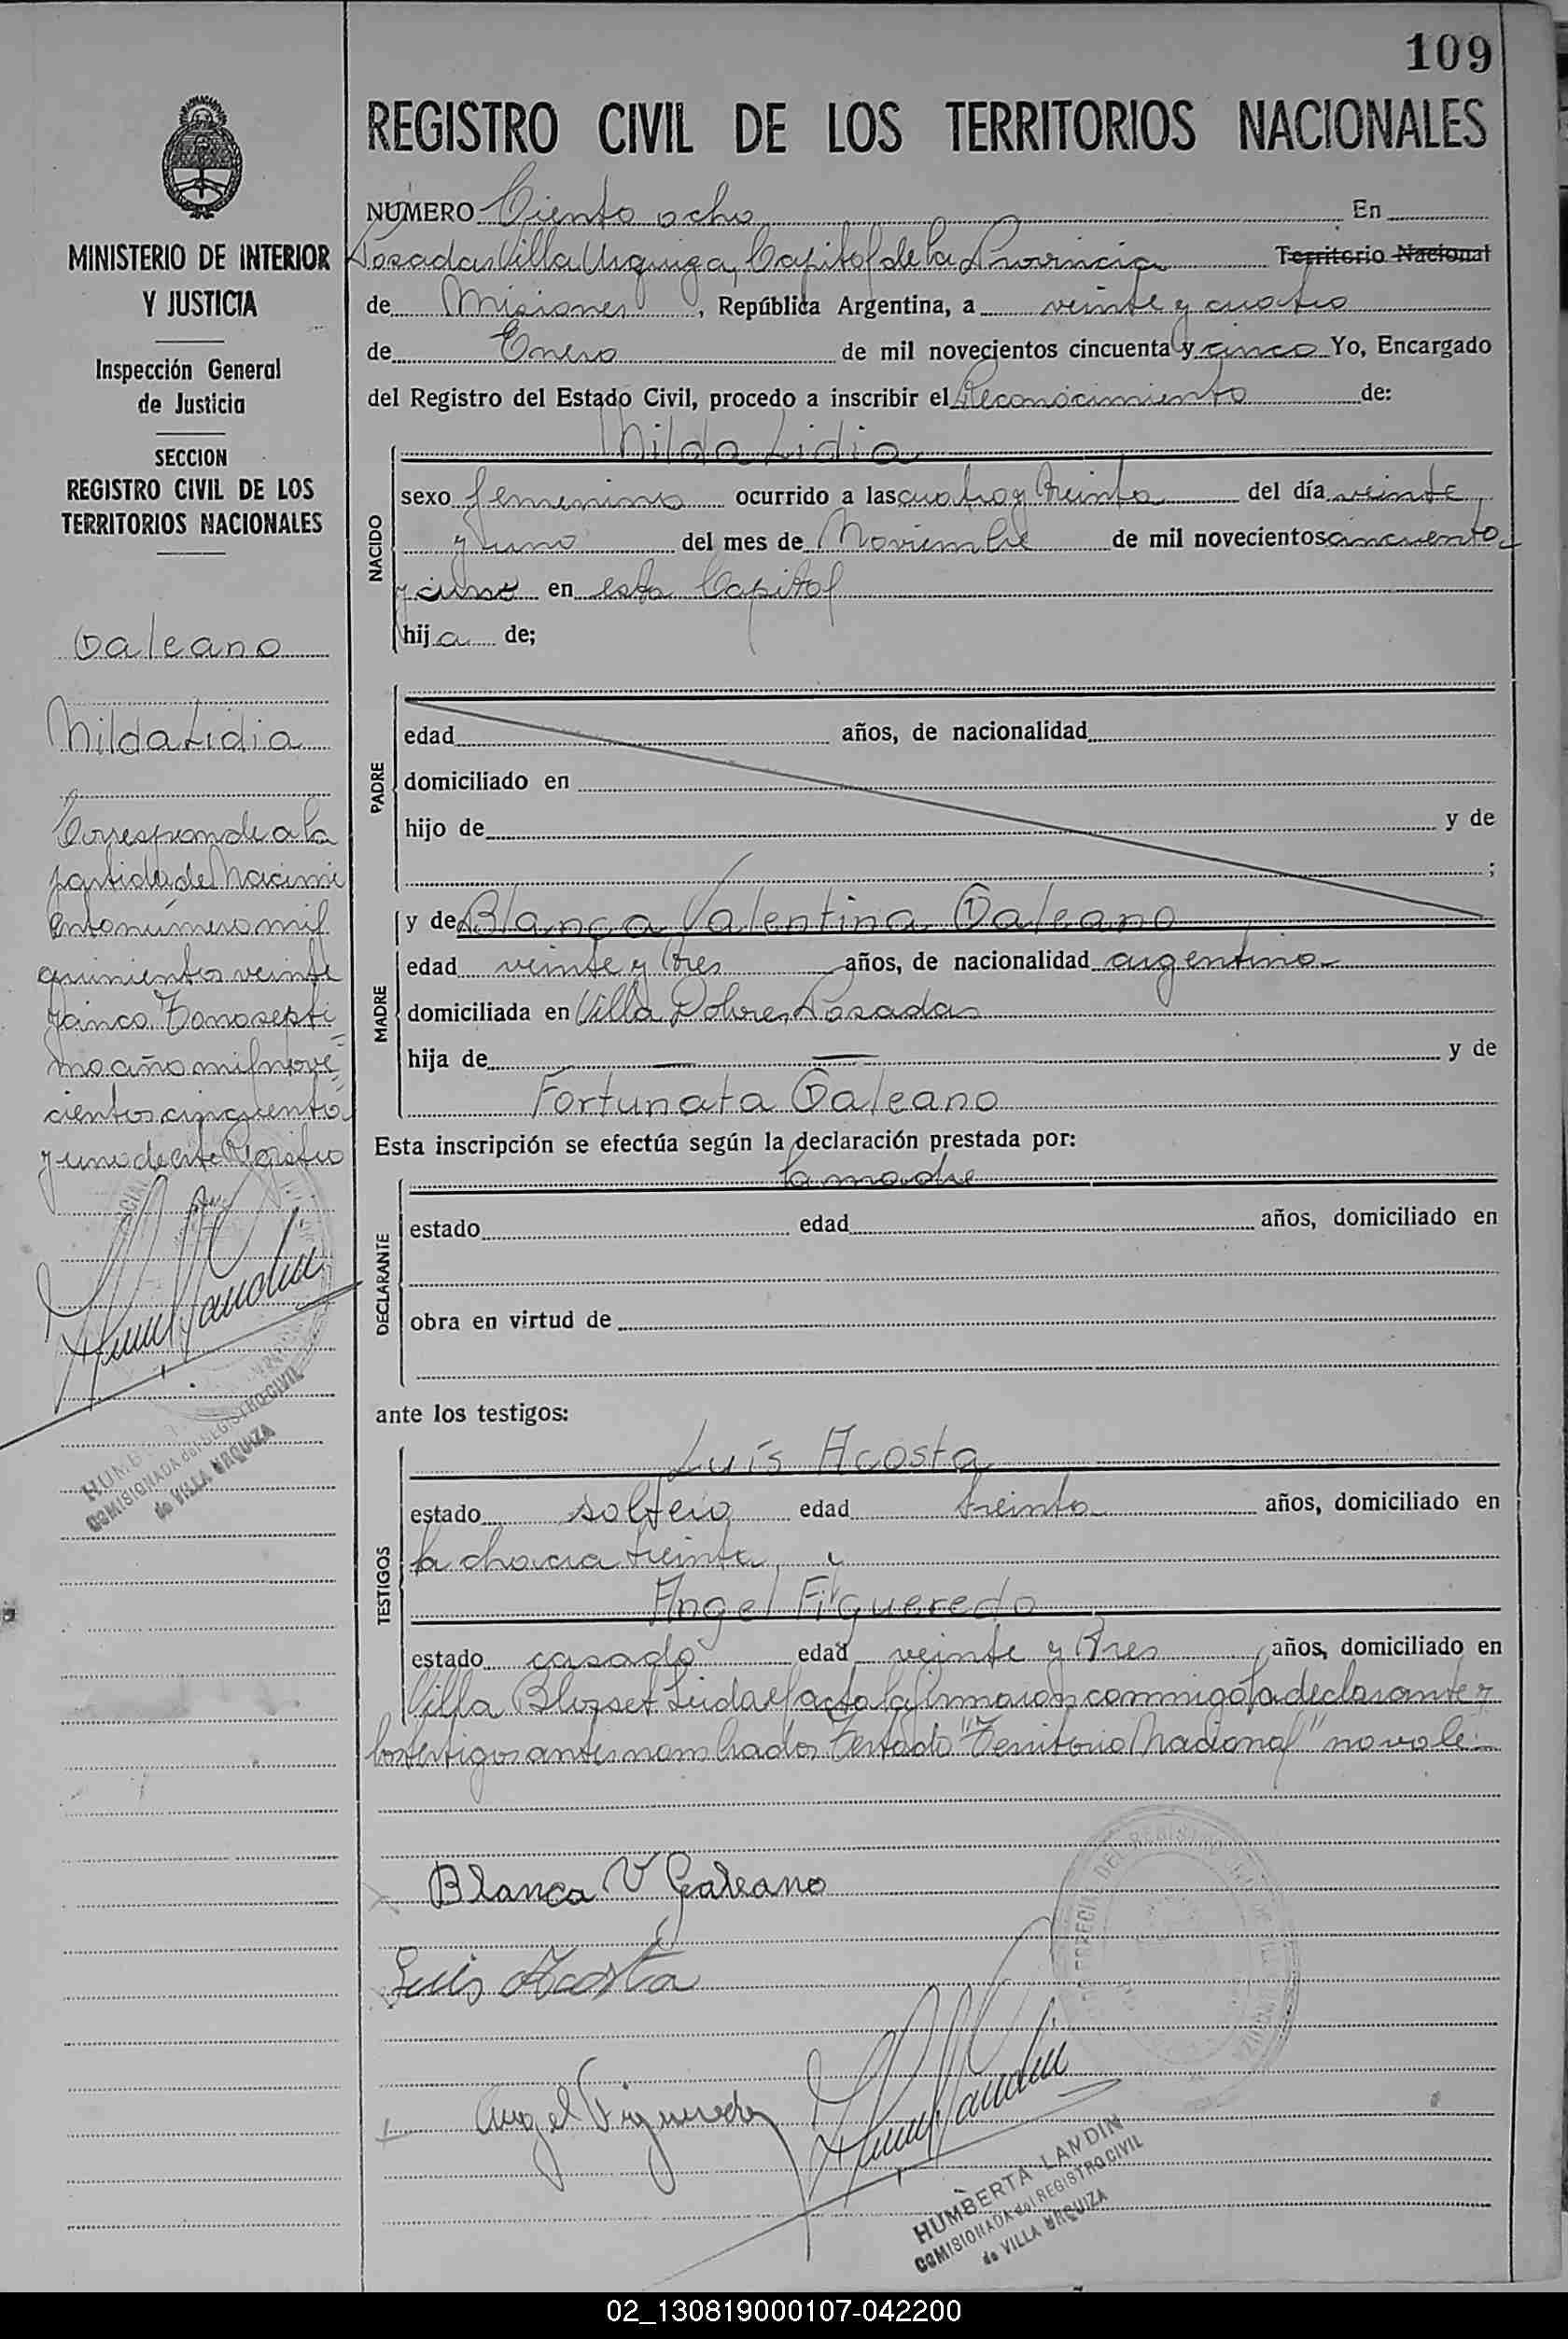 109
REGISTRO CIVIL DE LOS TERRITORIOS NACIONALES
MINISTERIO DE INTERIOR
Y JUSTICIA
Inspección General
de Justicia
SECCION
REGISTRO CIVIL DE LOS
TERRITORIOS NACIONALES
Galeano
Nilda Lidia
Corresponde a la
partida de Nacimi
ento número mil
quinientos veinte
y cinco Tomo septi
mo año mil nove
cientos cincuenta
y uno de este Registro
COMISIONADA del REGISTRO CIVIL
de VILLA URQUIZA
NUMERO Ciento ocho En
Posadas Villa Urquiza, Capital de la Provincia Territorio Nacional
de Misiones, República Argentina, a veinte y cuatro
de Enero de mil novecientos cincuenta y cinco Yo, Encargado
del Registro del Estado Civil, procedo a inscribir el Reconocimiento de:
Nilda Lidia
NACIDO
sexo femenino ocurrido a las cuatro y treinta del día veinte
y uno del mes de Noviembre de mil novecientos cincuenta
y uno en esta Capital
hija de;
PADRE
edad años, de nacionalidad
domiciliado en
hijo de y de
;
MADRE
y de Blanca Valentina Galeano
edad veinte y tres años, de nacionalidad argentina
domiciliada en Villa Dolores Posadas
hija de y de
Fortunata Galeano
Esta inscripción se efectúa según la declaración prestada por:
la madre
DECLARANTE
estado edad años, domiciliado en
obra en virtud de
ante los testigos:
TESTIGOS
Luis Acosta
estado soltero edad treinta años, domiciliado en
la chacra treinta
Angel Figueredo
estado casado edad veinte y tres años, domiciliado en
Villa Blosset Leida el acta la firmaron conmigo la declarante y
los testigos antes nombrados Testado "Territorio Nacional" no vale
Blanca V Galeano
Luis Acosta
Angel Figueredo
HUMBERTA LANDIN
COMISIONADA del REGISTRO CIVIL
de VILLA URQUIZA
02_130819000107-042200